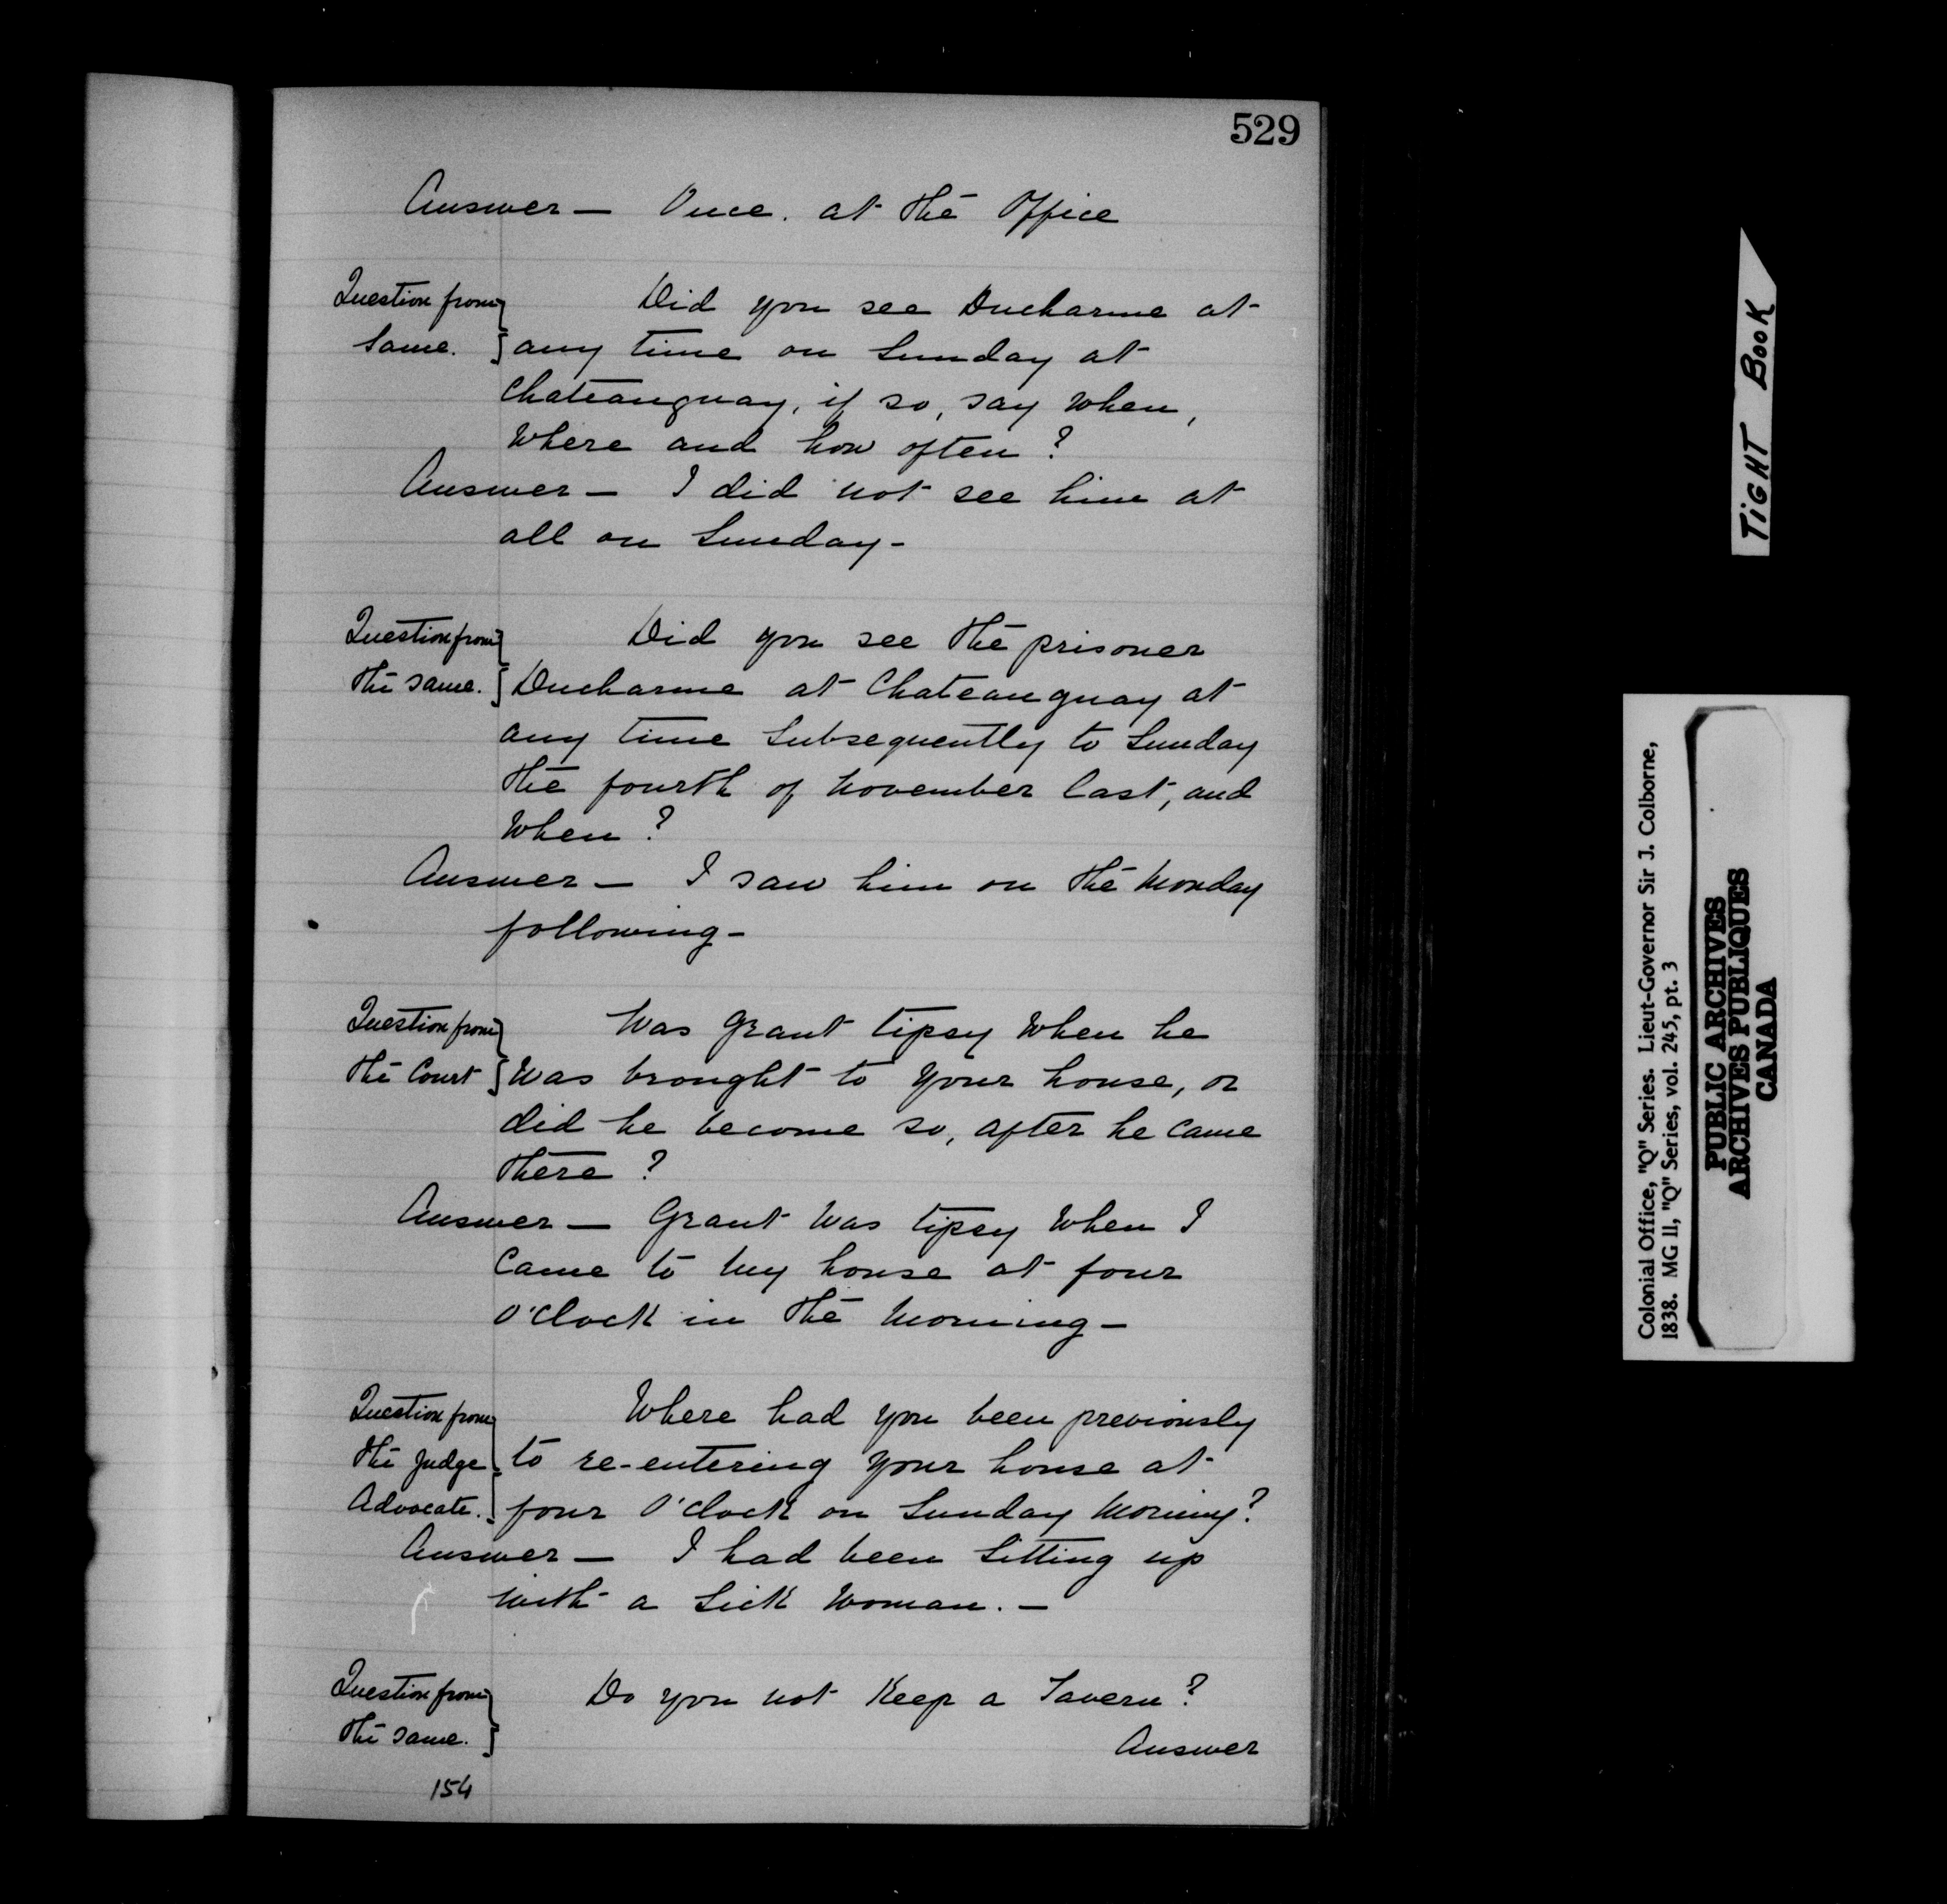 529
Answer — Once. at the Office
Question from
same.
Did you see Ducharme at
any time on Sunday at
Chateauguay, if so, say when,
where and how often?
Answer — I did not see him at
all on Sunday -
Question from
the same.
Did you see the prisoner
Ducharme at Chateauguay at
any time subsequently to Sunday
the fourth of November last, and
when?
Answer — I saw him on the Monday
following -
Question from
the Court
Was Grant tipsy when he
was brought to your house, or
did he become so, after he came
there?
Answer — Grant was tipsy when I
came to my house at four
o'clock in the morning —
Question from
the Judge
Advocate.
Where had you been previously
to re-entering your house at
four o'clock on Sunday morning?
Answer — I had been sitting up
with a sick woman. —
Question from
the same.
Do you not keep a Tavern?
Answer
154
TIGHT BOOK
Colonial Office, "Q" Series. Lieut-Governor Sir J. Colborne,
1838. MG 11, "Q" Series, vol. 245, pt. 3
PUBLIC ARCHIVES
ARCHIVES PUBLIQUES
CANADA